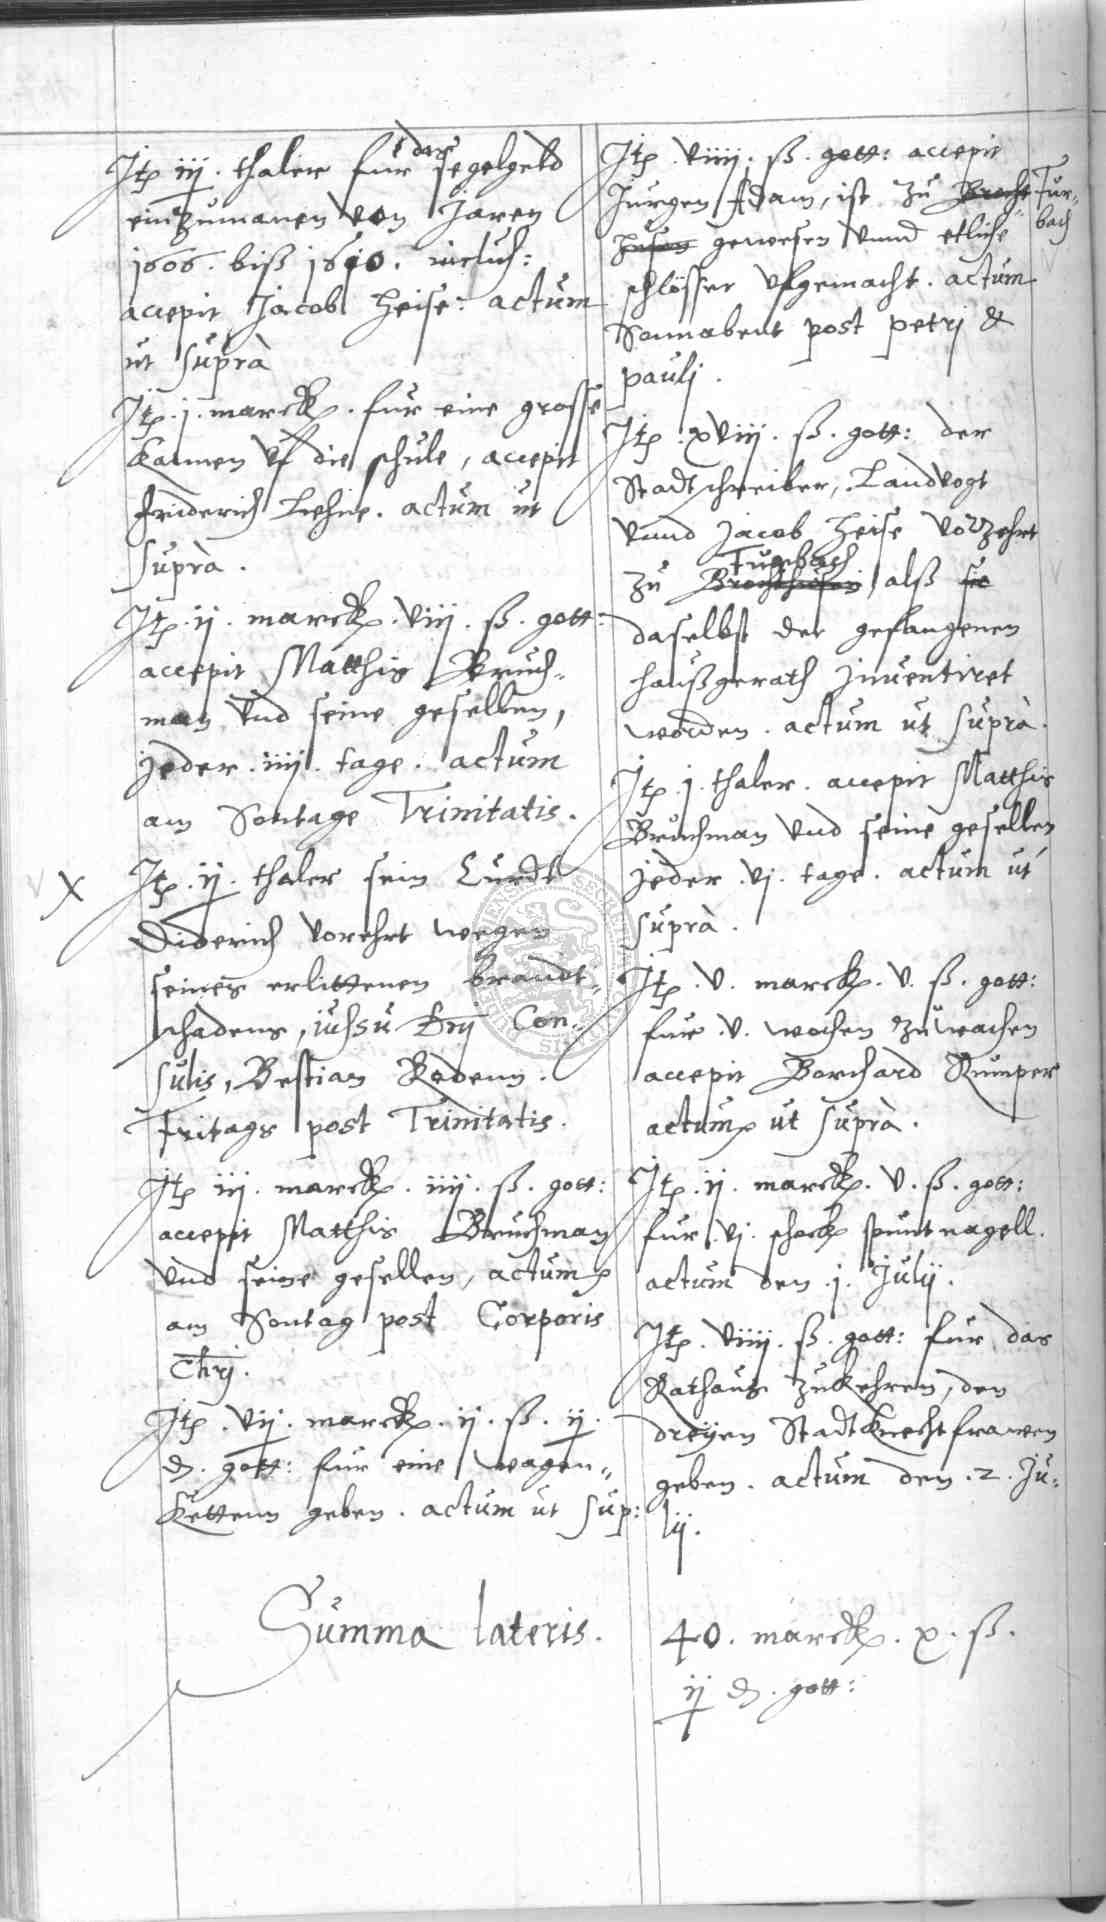 Itp iij. thaler fur das segelgeld
einzumanen von Jaren
1606. biß 1610. inclus:
accepit Jacob Heise: actum
ut suprà
Itp. j. marck. fur eine grosse
Kannen uf die schule, accepit
Friderich Lesine. actum ut
suprà.
Itp. ij. marck. viij. ß. gott:
accepit Matthis Bruch-
man und seine gesellen,
jeder. iiij. tage. actum
am Sontage Trinitatis.
X Itp. ij. thaler sein Curdt
Diderich vorehrt wegen
seines erlittenen brandt-
schadens, iussu Dnj Con-
sulis, Bestian Rodenn.
Fritags post Trinitatis.
Itp iij. marck. iiij. ß. gott:
accepit Matthis Bruchman
und seine gesellen, actum
am Sontag post Corporis
Chrj.
Itp. vij. marck. ij. ß. ij
d. gott: fur eine wagen-
Kettenn geben. actum ut sup:
Itp. viiij. ß. gott: accepit
Jurgen Adam, ist zu Brocht- Fur-
husen gewesen unnd etliche bach
schlösser ufgemacht. actum
Sonnabent post petrj &
paulj.
Itp. xviij. ß. gott: der
Stadtschreiber, Landvogt
unnd Jacob Heise vorzehrt
Fugebach
zu Brochthusen, alß sie
daselbst der gefangenen
haußgerath Inventiret
worden. actum ut suprà.
Itp. j. thaler. accepit Matthis
Bruchman und seine gesellen
jeder. vj. tage. actum ut
suprà.
Itp. v. marck. v. ß. gott:
fur. v. wochen zuwachen
accepit Borchard Rumper
actum ut suprà.
Itp. ij. marck. v. ß. gott:
fur. vj. schock spuntnagell.
actum den. j. Julij.
Itp. viiij. ß. gott: fur das
Rathaus zukehren, den
dreyen Stadtknechtfrawen
geben. actum den. 2. Ju-
lij.
Summa lateris. 40. marck. x. ß.
ij d. gott: